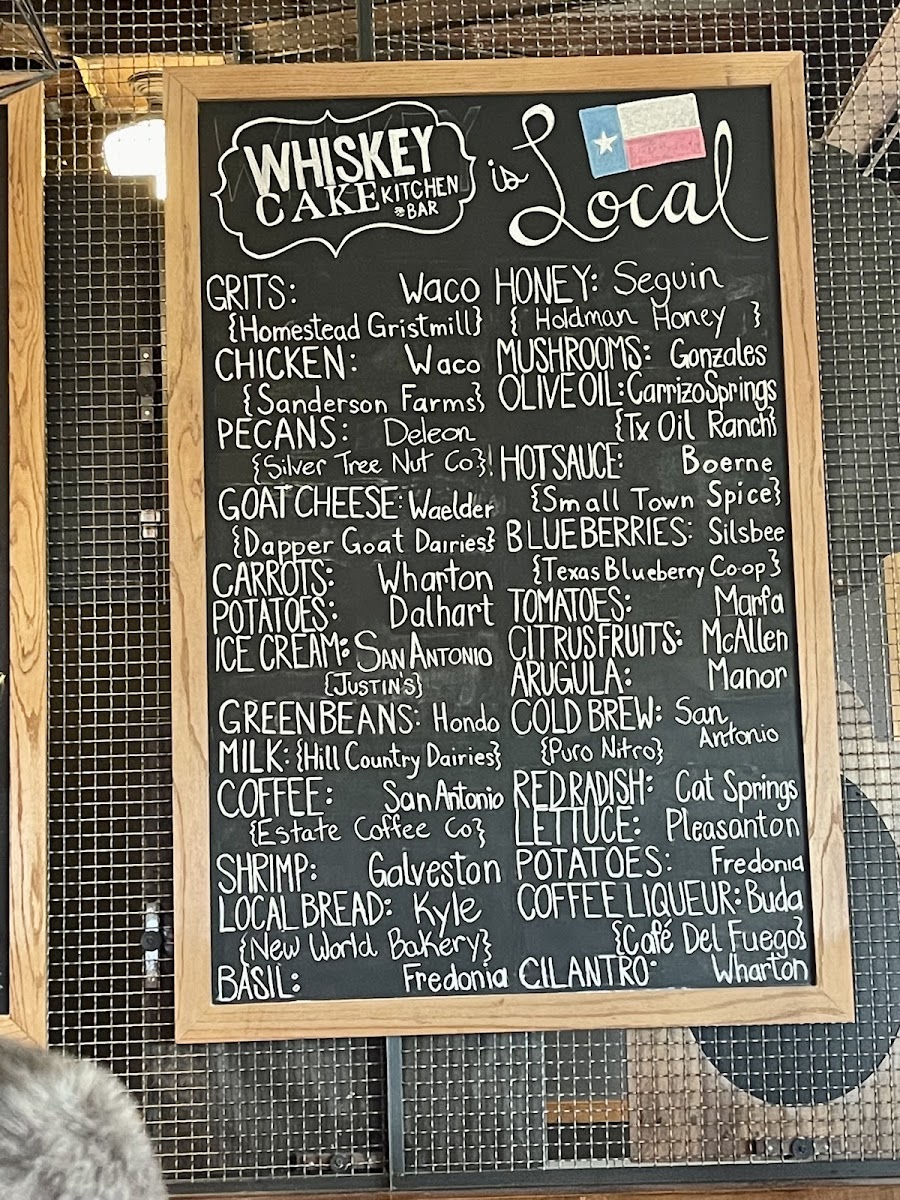 WHISKEY
CAKE KITCHEN
& BAR
is Local
GRITS: Waco
{Homestead Gristmill}
CHICKEN: Waco
{Sanderson Farms}
PECANS: Deleon
{Silver Tree Nut Co}!
GOAT CHEESE: Waelder
{Dapper Goat Dairies}
CARROTS: Wharton
POTATOES: Dalhart
ICE CREAM: SAN ANTONIO
{JUSTIN'S}
GREEN BEANS: Hondo
MILK: {Hill Country Dairies}
COFFEE: San Antonio
{Estate Coffee Co}
SHRIMP: Galveston
LOCAL BREAD: Kyle
{New World Bakery}
BASIL: Fredonia
HONEY: Seguin
{ Holdman Honey }
MUSHROOMS: Gonzales
OLIVE OIL: Carrizo Springs
{Tx Oil Ranch}
HOT SAUCE: Boerne
{Small Town Spice}
BLUEBERRIES: Silsbee
{Texas Blueberry Co-op}
TOMATOES: Marfa
CITRUS FRUITS: McAllen
ARUGULA: Manor
COLD BREW: San
Antonio
{Puro Nitro}
RED RADISH: Cat Springs
LETTUCE: Pleasanton
POTATOES: Fredonia
COFFEE LIQUEUR: Buda
{Café Del Fuego}
CILANTRO: Wharton